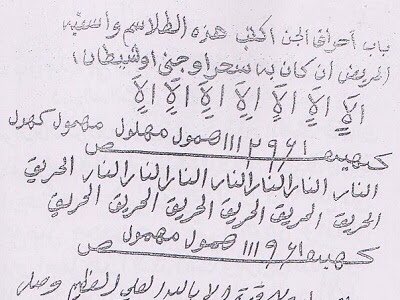 باب احراق الجن اكتب هذه الطلاسم واسقه
المريض ان كان به سحر او جنى او شيطان
الا الا الا الا الا الا الا
كهيعص ١١١٢٩٦١ همول مهلول مهمول كهول
النار النار النار النار النار النار النار الحريق
الحريق الحريق الحريق الحريق الحريق الحريق
كهيعص ١١١٩٦١ همول مهمول
قوة الا بالله العلي العظيم وصل